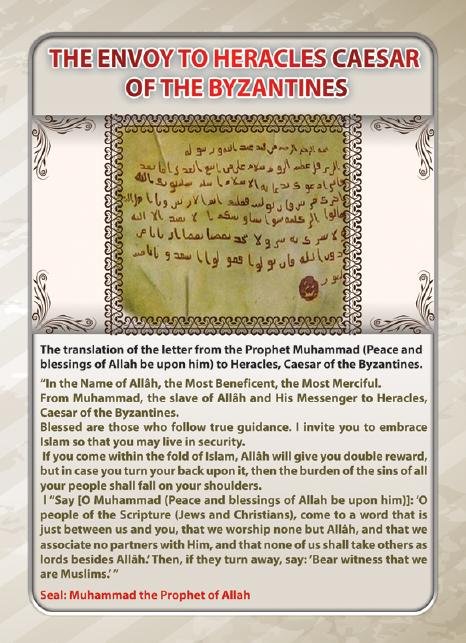 THE ENVOY TO HERACLES CAESAR
OF THE BYZANTINES
The translation of the letter from the Prophet Muhammad (Peace and
blessings of Allah be upon him) to Heracles, Caesar of the Byzantines.
“In the Name of Allâh, the Most Beneficent, the Most Merciful.
From Muhammad, the slave of Allâh and His Messenger to Heracles,
Caesar of the Byzantines.
Blessed are those who follow true guidance. I invite you to embrace
Islam so that you may live in security.
If you come within the fold of Islam, Allâh will give you double reward,
but in case you turn your back upon it, then the burden of the sins of all
your people shall fall on your shoulders.
I “Say [O Muhammad (Peace and blessings of Allah be upon him)]: ‘O
people of the Scripture (Jews and Christians), come to a word that is
just between us and you, that we worship none but Allâh, and that we
associate no partners with Him, and that none of us shall take others as
lords besides Allâh.’ Then, if they turn away, say: ‘Bear witness that we
are Muslims.’ ”
Seal: Muhammad the Prophet of Allah